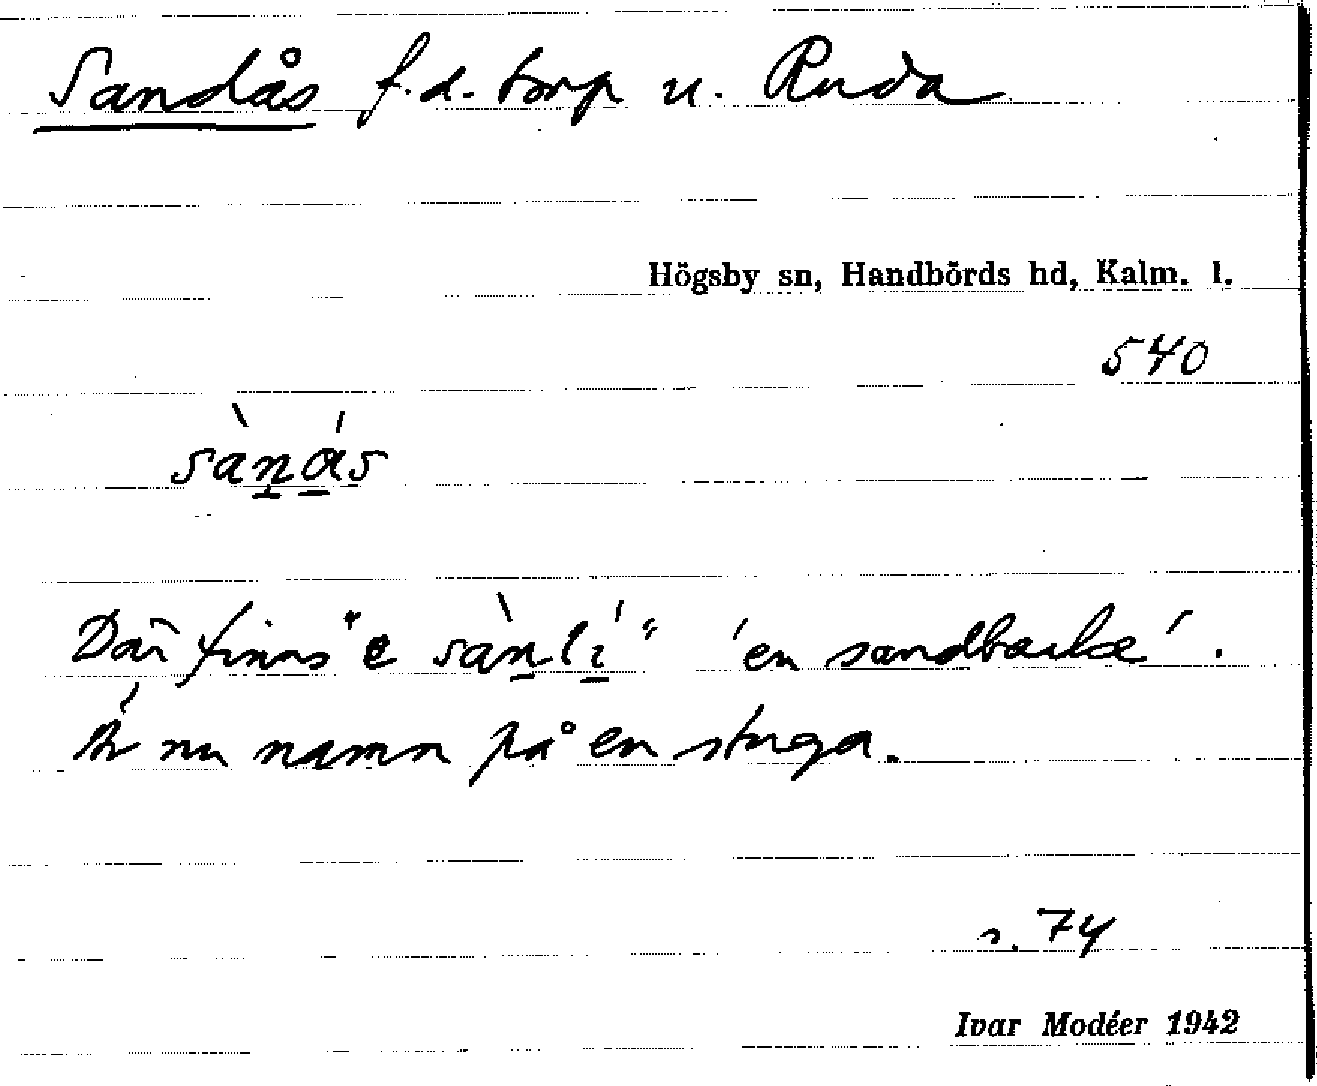 Sandås f.d. torp u. Ruda
Högsby sn, Handbörds hd, Kalm. l.
540
sànás
Där finns "e sànlí" 'en sandbacke'.
Är nu namn på en stuga.
s. 74
Ivar Modéer 1942